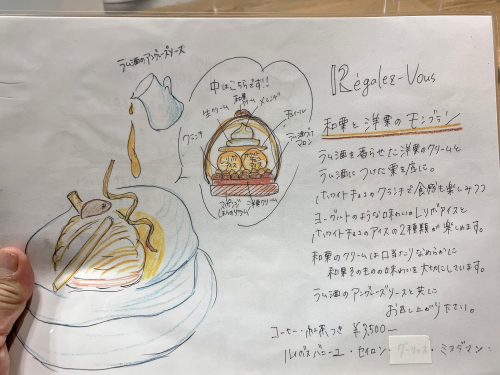 ラム酒のアングレーズソース
中はこちらです!!
生クリーム
和栗クリーム
メレンゲ
チュイール
ラム酒づけマロン
クランチ
L.リガアイス
ホワイトチョコアイス
洋栗クリーム
Régalez-Vous
和栗と洋栗のモンブラン
ラム酒を香らせた洋栗のクリームと
ラム酒につけた栗を底に。
ホワイトチョコのクランチで食感も楽しみつつ
ヨーグルトのような味わいのL.リガアイスと
ホワイトチョコのアイスの2種類が楽しめます。
和栗のクリームは口当たりなめらかに
和栗そのものの味わいを大切にしています。
ラム酒のアングレーズソースと共に
お召し上がり下さい。
コーヒー・紅茶つき ¥3,500ー
・セイロン・ダージリン・